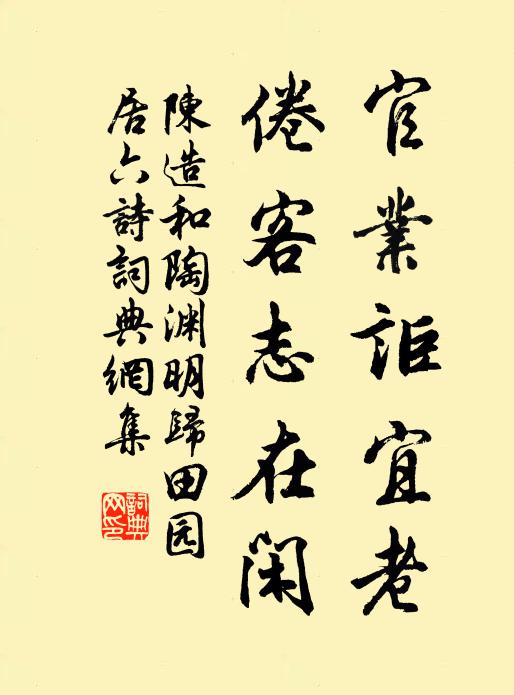 官業詎宜老
倦客志在閑
陳造和陶淵明歸田园
居六詩詞典網集
詞典
网印